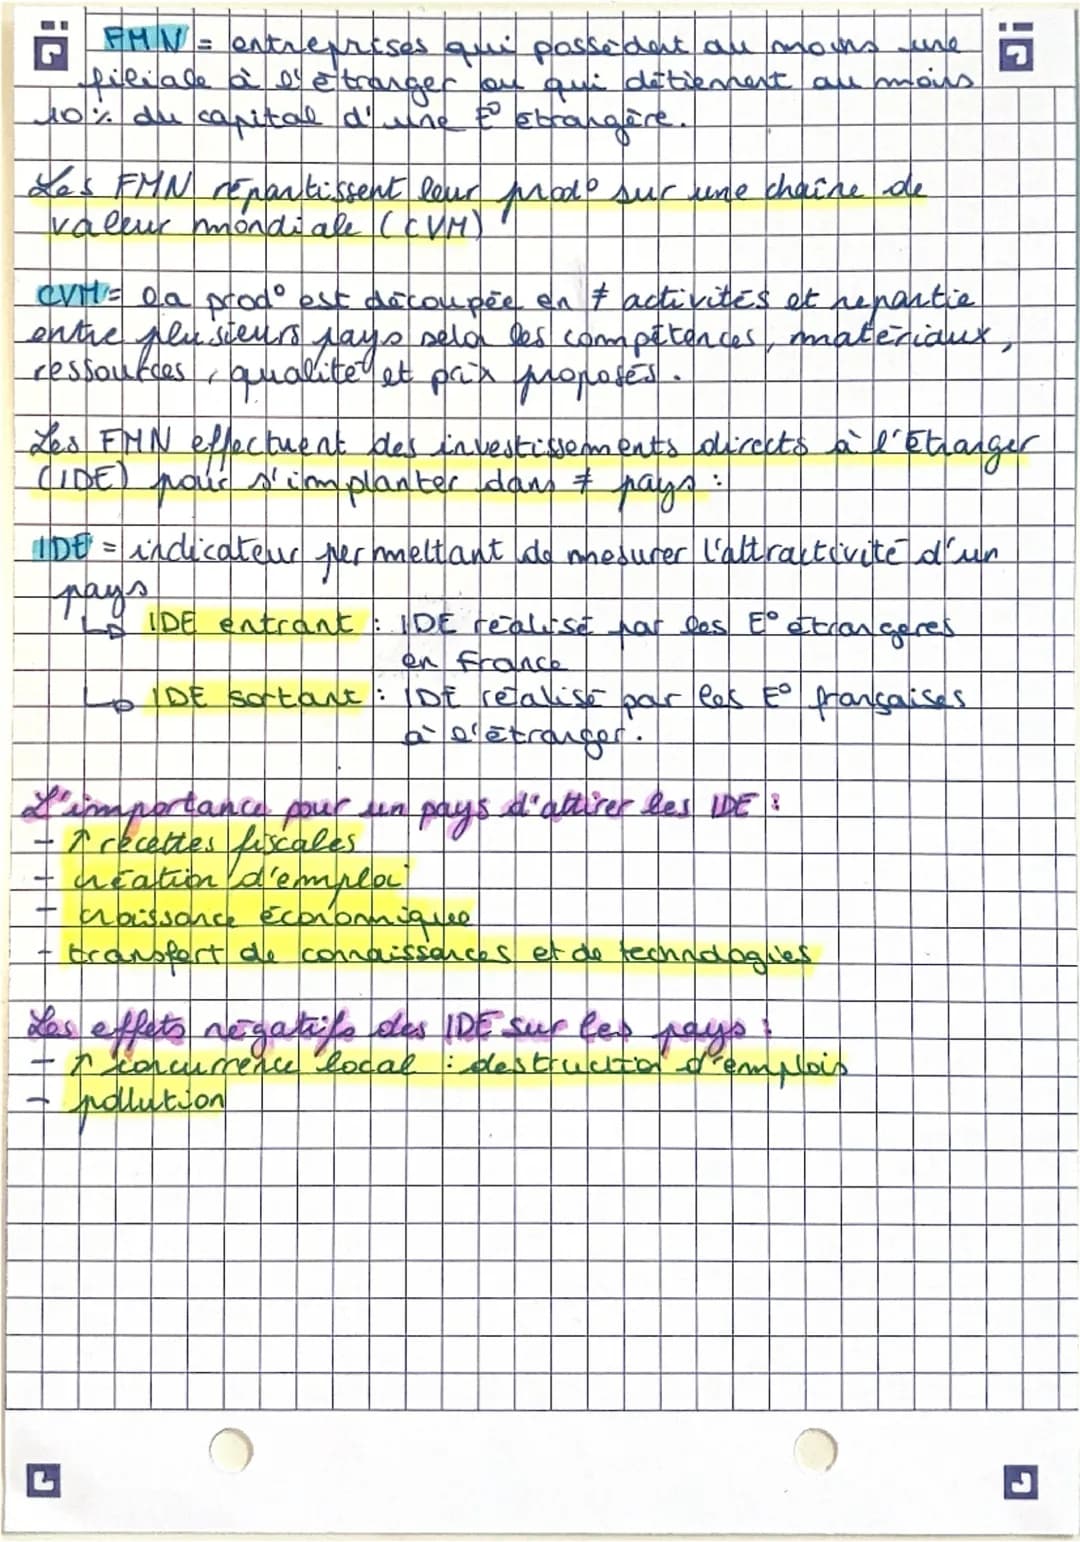 FMN = entreprises qui possèdent au moins une
filiale à l'étranger ou qui détiennent au moins
10% du capital d'une E° étrangère.
Les FMN répartissent leur prod° sur une chaîne de
valeur mondiale (CVM)
CVM = la prod° est découpée en ≠ activités et repartie
entre plusieurs pays selon les compétences, matériaux,
ressources, qualité et prix proposés.
Les FMN effectuent des investissements directs à l'étranger
(IDE) pour s'implanter dans ≠ pays :
IDE = indicateur permettant de mesurer l'attractivité d'un
pays
↳ IDE entrant : IDE réalisé par les E° étrangeres
en France
↳ IDE sortant : IDE réalisé par les E° françaises
à l'étranger.
L'importance pour un pays d'attirer les IDE :
- ↑ recettes fiscales
- création d'emploi
- croissance économique
- transfert de connaissances et de technologies
Les effets négatifs des IDE sur les pays :
- ↑ concurrence local : destruction d'emplois
- pollution